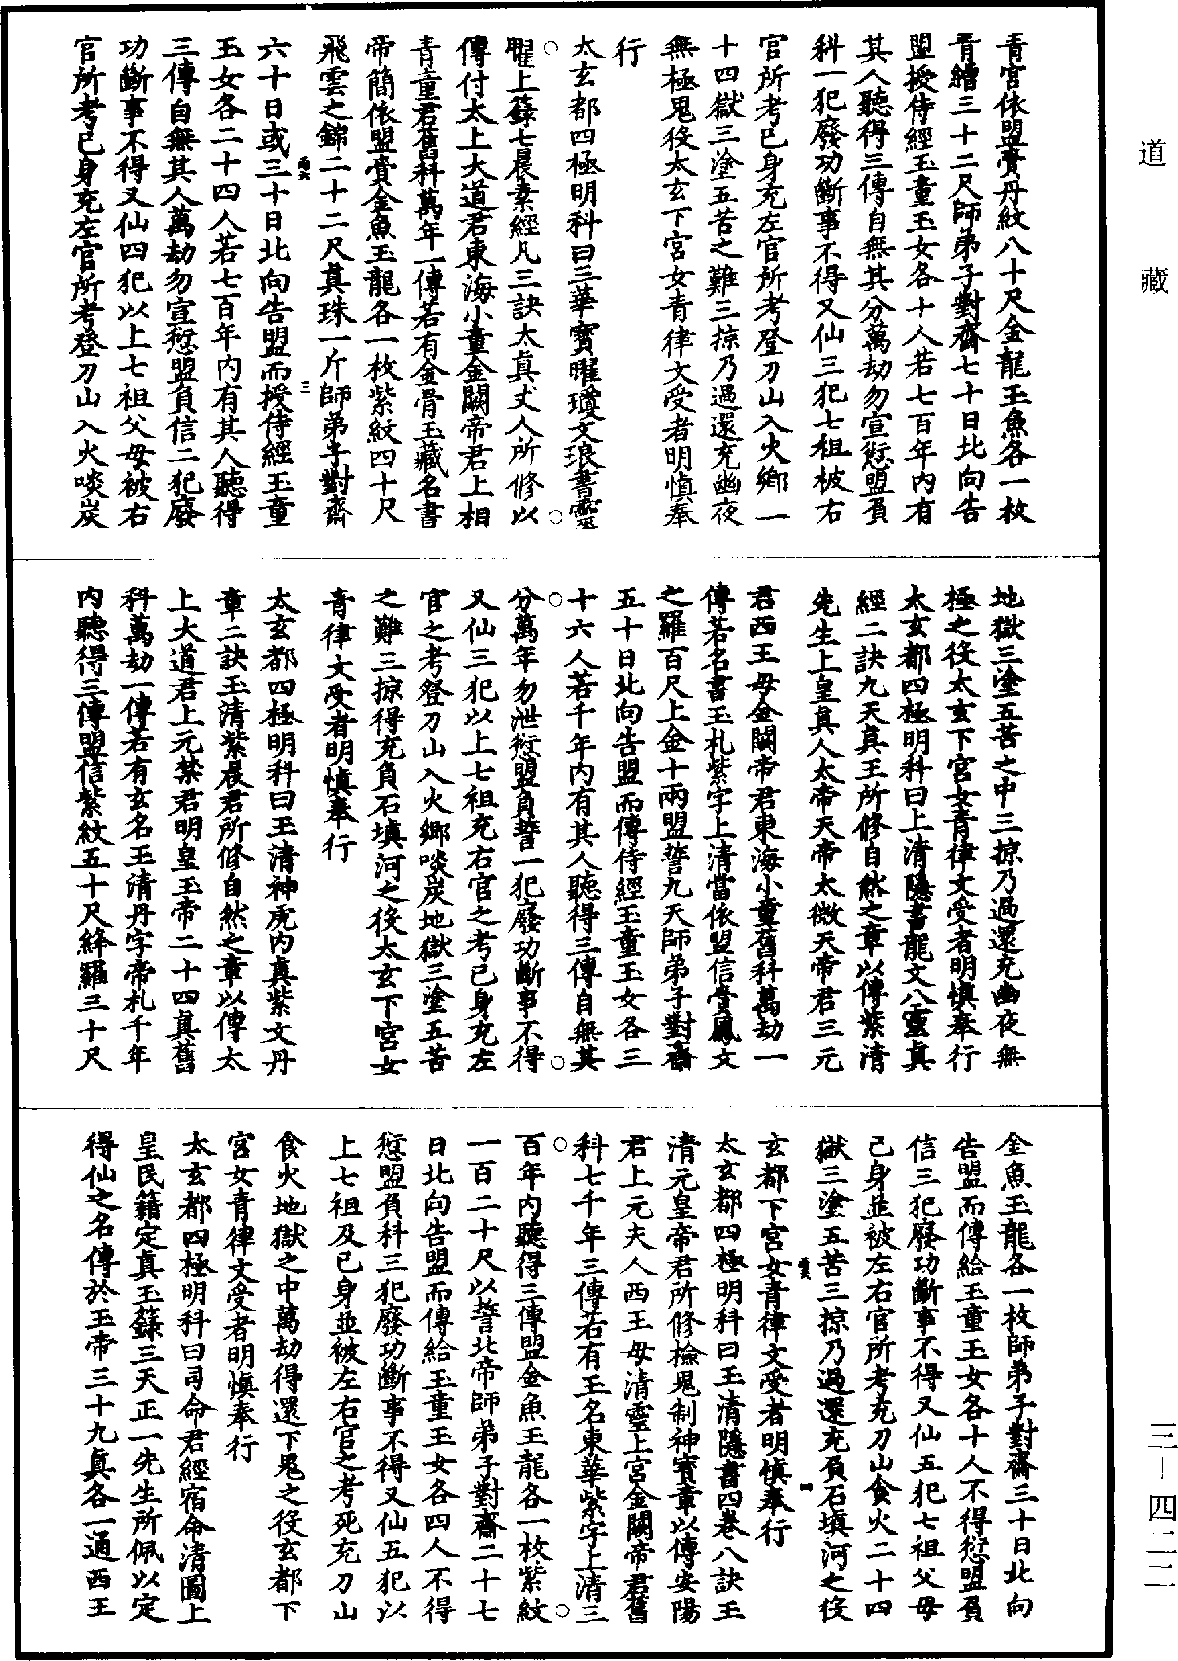 道藏
青宮依盟賫丹紋八十尺金龍玉魚各一枚
青繒三十二尺師弟子對齋七十日北向告
盟授侍經玉童玉女各十人若七百年內有
其人聽得三傳自無其分萬劫勿宣愆盟負
科一犯廢功斷事不得又仙三犯七祖被右
官所考已身充左官所考登刀山入火鄉一
十四獄三塗五苦之難三掠乃過還充幽夜
無極鬼役太玄下宮女青律文受者明慎奉
行
太玄都四極明科曰三華寶曜瓊文琅書靈
曜上籙七晨素經凡三訣太真丈人所修以
傳付太上大道君東海小童金闕帝君上相
青童君舊科萬年一傳若有金骨玉藏名書
帝簡依盟賫金魚玉龍各一枚紫紋四十尺
飛雲之錦二十二尺真珠一斤師弟子對齋
六十日或三十日北向告盟而授侍經玉童
玉女各二十四人若七百年內有其人聽得
三傳自無其人萬劫勿宣愆盟負信二犯廢
功斷事不得又仙四犯以上七祖父母被右
官所考已身充左官所考登刀山入火啖炭
地獄三塗五苦之中三掠乃過還充幽夜無
極之役太玄下宮女青律文受者明慎奉行
太玄都四極明科曰上清隱書龍文八靈真
經二訣九天真王所修自然之章以傳紫清
先生上皇真人太帝天帝太微天帝君三元
君西王母金闕帝君東海小童舊科萬劫一
傳若名書玉札紫字上清當依盟信賫鳳文
之羅百尺上金十兩盟誓九天師弟子對齋
五十日北向告盟而傳侍經玉童玉女各三
十六人若千年內有其人聽得三傳自無其
分萬年勿泄愆盟負誓一犯廢功斷事不得
又仙三犯以上七祖充右官之考已身充左
官之考登刀山入火鄉啖炭地獄三塗五苦
之難三掠得充負石填河之役太玄下宮女
青律文受者明慎奉行
太玄都四極明科曰玉清神虎內真紫文丹
章二訣玉清紫晨君所修自然之章以傳太
上大道君上元禁君明皇玉帝二十四真舊
科萬劫一傳若有玄名玉清丹字帝札千年
內聽得三傳盟信紫紋五十尺絳羅三十尺
金魚玉龍各一枚師弟子對齋三十日北向
告盟而傳給玉童玉女各十人不得愆盟負
信三犯廢功斷事不得又仙五犯七祖父母
己身並被左右官所考充刀山食火二十四
獄三塗五苦三掠乃過還充負石填河之役
玄都下宮女青律文受者明慎奉行
太玄都四極明科曰玉清隱書四卷八訣玉
清元皇帝君所修檢鬼制神寶章以傳安陽
君上元夫人西王母清靈上宮金闕帝君舊
科七千年三傳若有玉名東華紫字上清三
百年內聽得三傳盟金魚玉龍各一枚紫紋
一百二十尺以誓北帝師弟子對齋二十七
日北向告盟而傳給玉童玉女各四人不得
愆盟負科三犯廢功斷事不得又仙五犯以
上七祖及已身並被左右官之考死充刀山
食火地獄之中萬劫得還下鬼之役玄都下
宮女青律文受者明慎奉行
太玄都四極明科曰司命君經宿命清圖上
皇民籍定真玉籙三天正一先生所佩以定
得仙之名傳於玉帝三十九真各一通西王
三—四二二